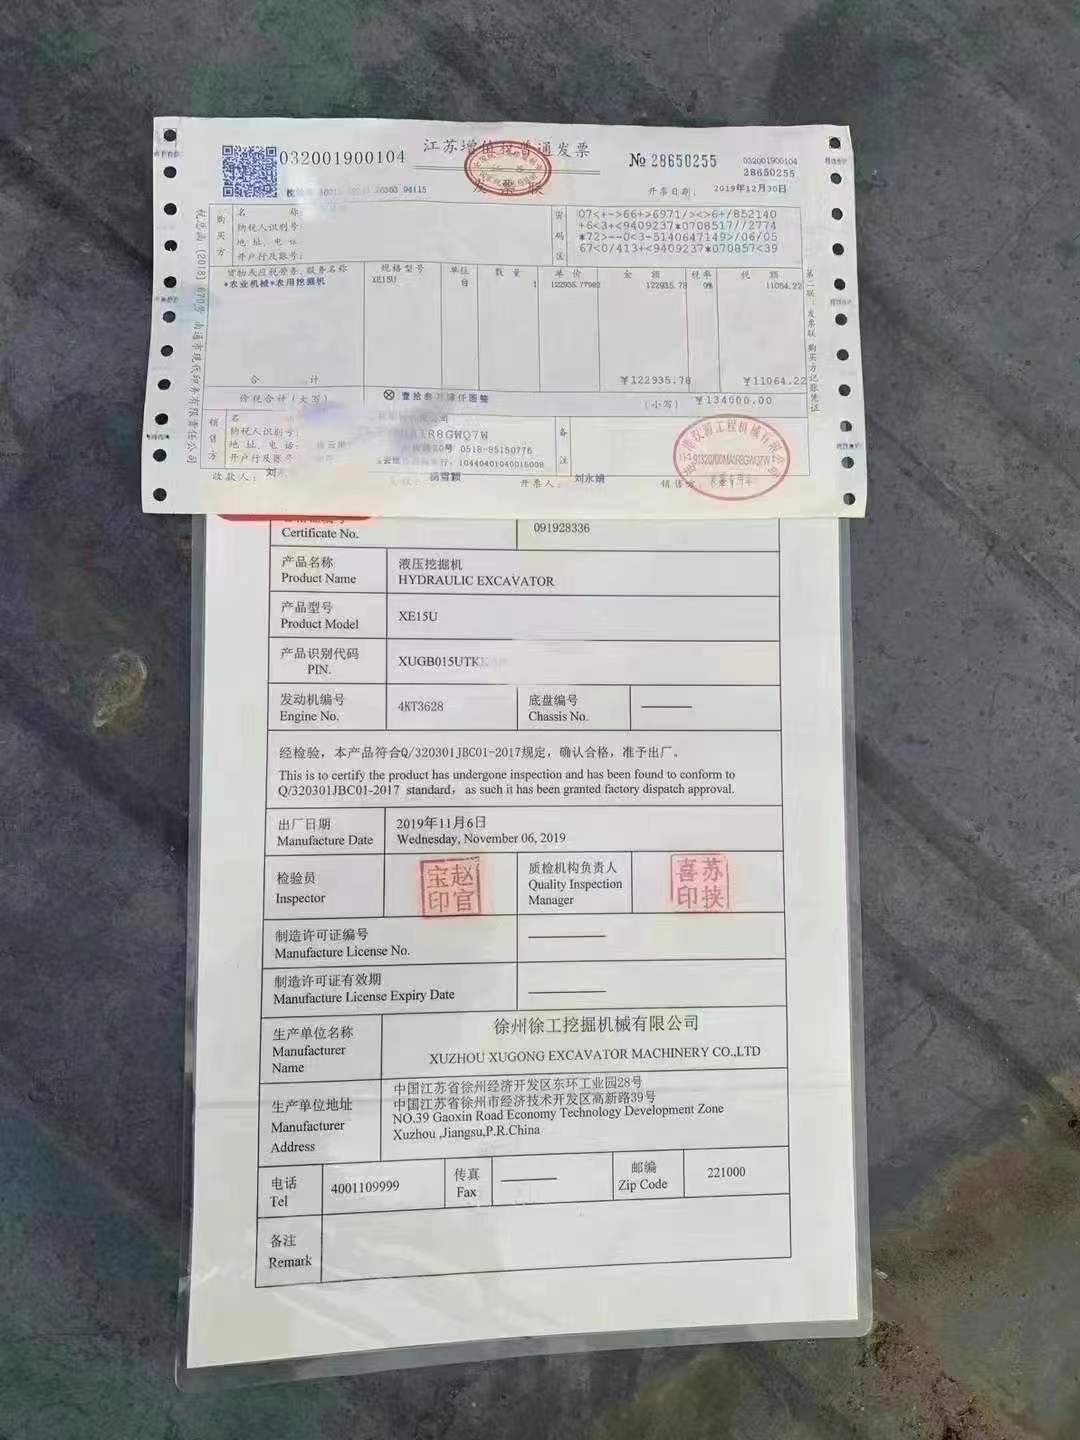 032001900104
江苏增值税普通发票
发票联
№ 28650255
032001900104
28650255
开票日期： 2019年12月30日
税总函〔2018〕670号 南通市现代印务有限责任公司
购买方
名 称：
纳税人识别号：
地 址、电 话：
开户行及账号：
密码
07<+->66+>6971/><>6+/852140
+6<3+<9409237*0708517//2774
*72>--0<3-5140647149>/06/05
67<0/413+<9409237*070857<39
货物或应税劳务、服务名称 规格型号 单位 数 量 单 价 金 额 税率 税 额
*农业机械*农用挖掘机 XE15U 台 1 122935.77982 122935.78 9% 11064.22
合 计 ￥122935.78 ￥11064.22
价税合计（大写） ⊗ 壹拾叁万肆仟圆整 （小写）￥134000.00
第二联：发票联 购买方记账凭证
销售方
名
纳税人识别号：
地 址、电 话：
开户行及账号：
R8GWQ7W
0518-85150776
10440401040015008
备注
收款人：
刘永
胡雪颖
开票人：
刘永娟
Certificate No.
091928336
产品名称
Product Name
液压挖掘机
HYDRAULIC EXCAVATOR
产品型号
Product Model
XE15U
产品识别代码
PIN.
XUGB015UTK
发动机编号
Engine No.
4KT3628
底盘编号
Chassis No.
经检验，本产品符合Q/320301JBC01-2017规定，确认合格，准予出厂。
This is to certify the product has undergone inspection and has been found to conform to
Q/320301JBC01-2017 standard，as such it has been granted factory dispatch approval.
出厂日期
Manufacture Date
2019年11月6日
Wednesday, November 06, 2019
检验员
Inspector
赵官宝印
质检机构负责人
Quality Inspection
Manager
苏挟喜印
制造许可证编号
Manufacture License No.
制造许可证有效期
Manufacture License Expiry Date
生产单位名称
Manufacturer
Name
徐州徐工挖掘机械有限公司
XUZHOU XUGONG EXCAVATOR MACHINERY CO.,LTD
生产单位地址
Manufacturer
Address
中国江苏省徐州经济开发区东环工业园28号
中国江苏省徐州市经济技术开发区高新路39号
NO.39 Gaoxin Road Economy Technology Development Zone
Xuzhou ,Jiangsu,P.R.China
电话
Tel
4001109999
传真
Fax
邮编
Zip Code
221000
备注
Remark